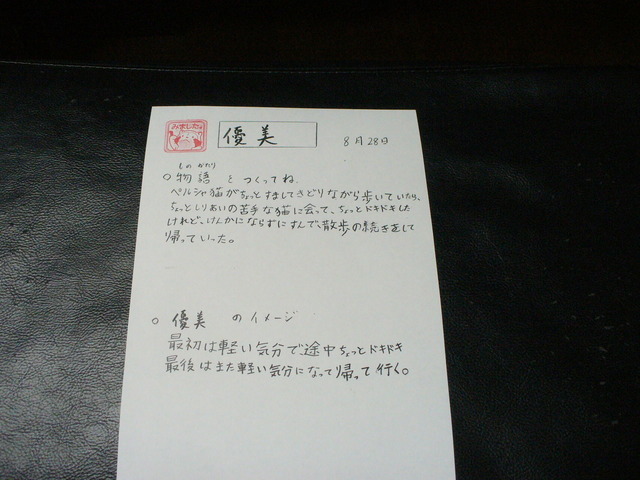 みました
優美
8月28日
ものがたり
○物語をつくってね.
ペルシャ猫がちょっとすましてきどりながら歩いていたら、
ちょっとしりあいの苦手な猫に会って、ちょっとドキドキした
けれど、けんかにならずにすんで、散歩の続きをして
帰っていった。
○優美のイメージ
最初は軽い気分で、途中ちょっとドキドキ
最後はまた軽い気分になって帰って行く。